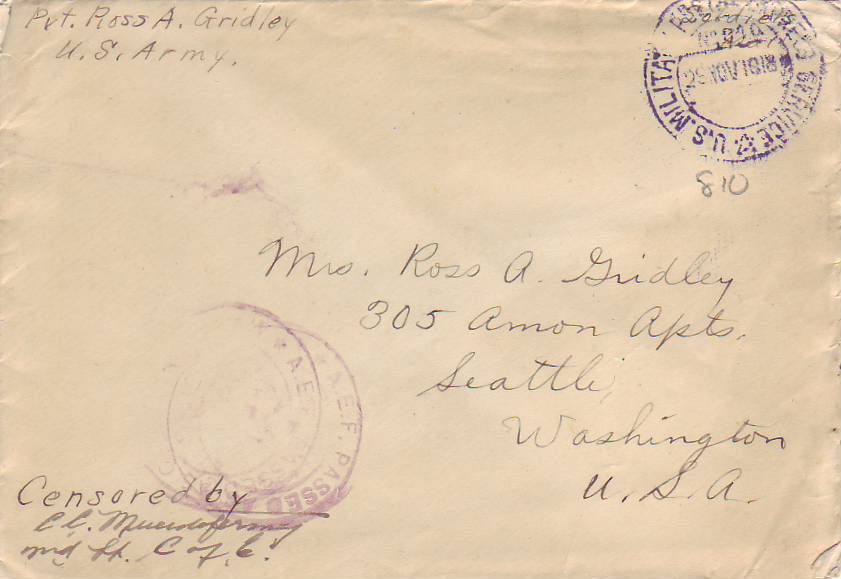 Pvt. Ross A. Gridley
U.S. Army.
Soldier's
U.S. MILITARY POSTAL EXPRESS SERVICE
No
29 NOV 1918
810
Mrs. Ross A. Gridley
305 Amon Apts.
Seattle,
Washington
U. S. A.
A.E.F. PASSED
A.E.F. PASSED
Censored by
C. C.
C of E.